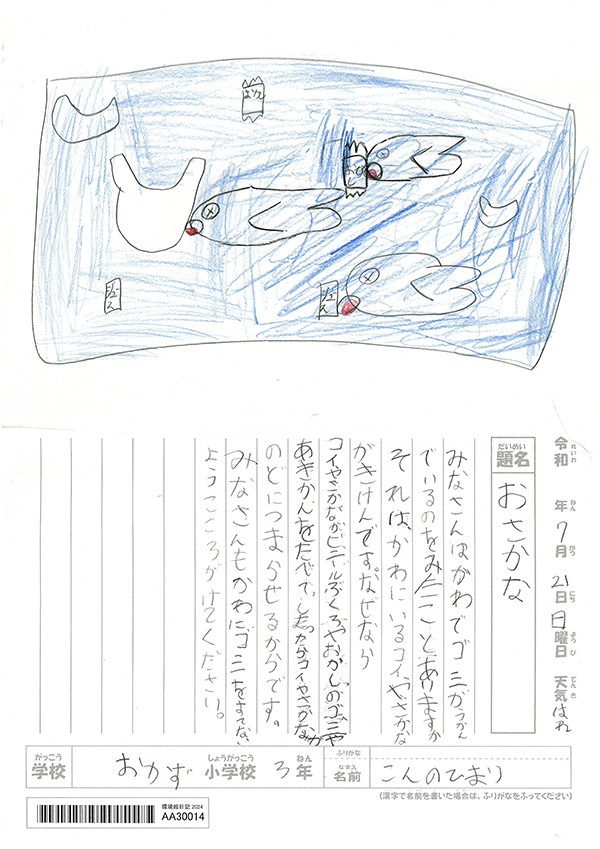 おかし
おかし
ジュース
ジュース
令和 年 7月 21日 日曜日 天気 はれ
れいわ ねん がつ にち ようび てんき
だいめい
題名 おさかな
みなさんはかわでゴミがうかん
でいるのをみたことありますか
それは、かわにいるコイやさかな
がきけんです。なぜなら
コイやさかながビニールぶくろやおかしのゴミや
あきかんをたべてしまったからコイやさかなが
のどにつまらせるからです。
みなさんもかわにゴミをすてない
ようこころがけてください。
がっこう しょうがっこう ねん ふりがな なまえ
学校 おかず 小学校 3年 名前 こんのひまり
(漢字で名前を書いた場合は、ふりがなをふってください)
環境絵日記2024
AA30014